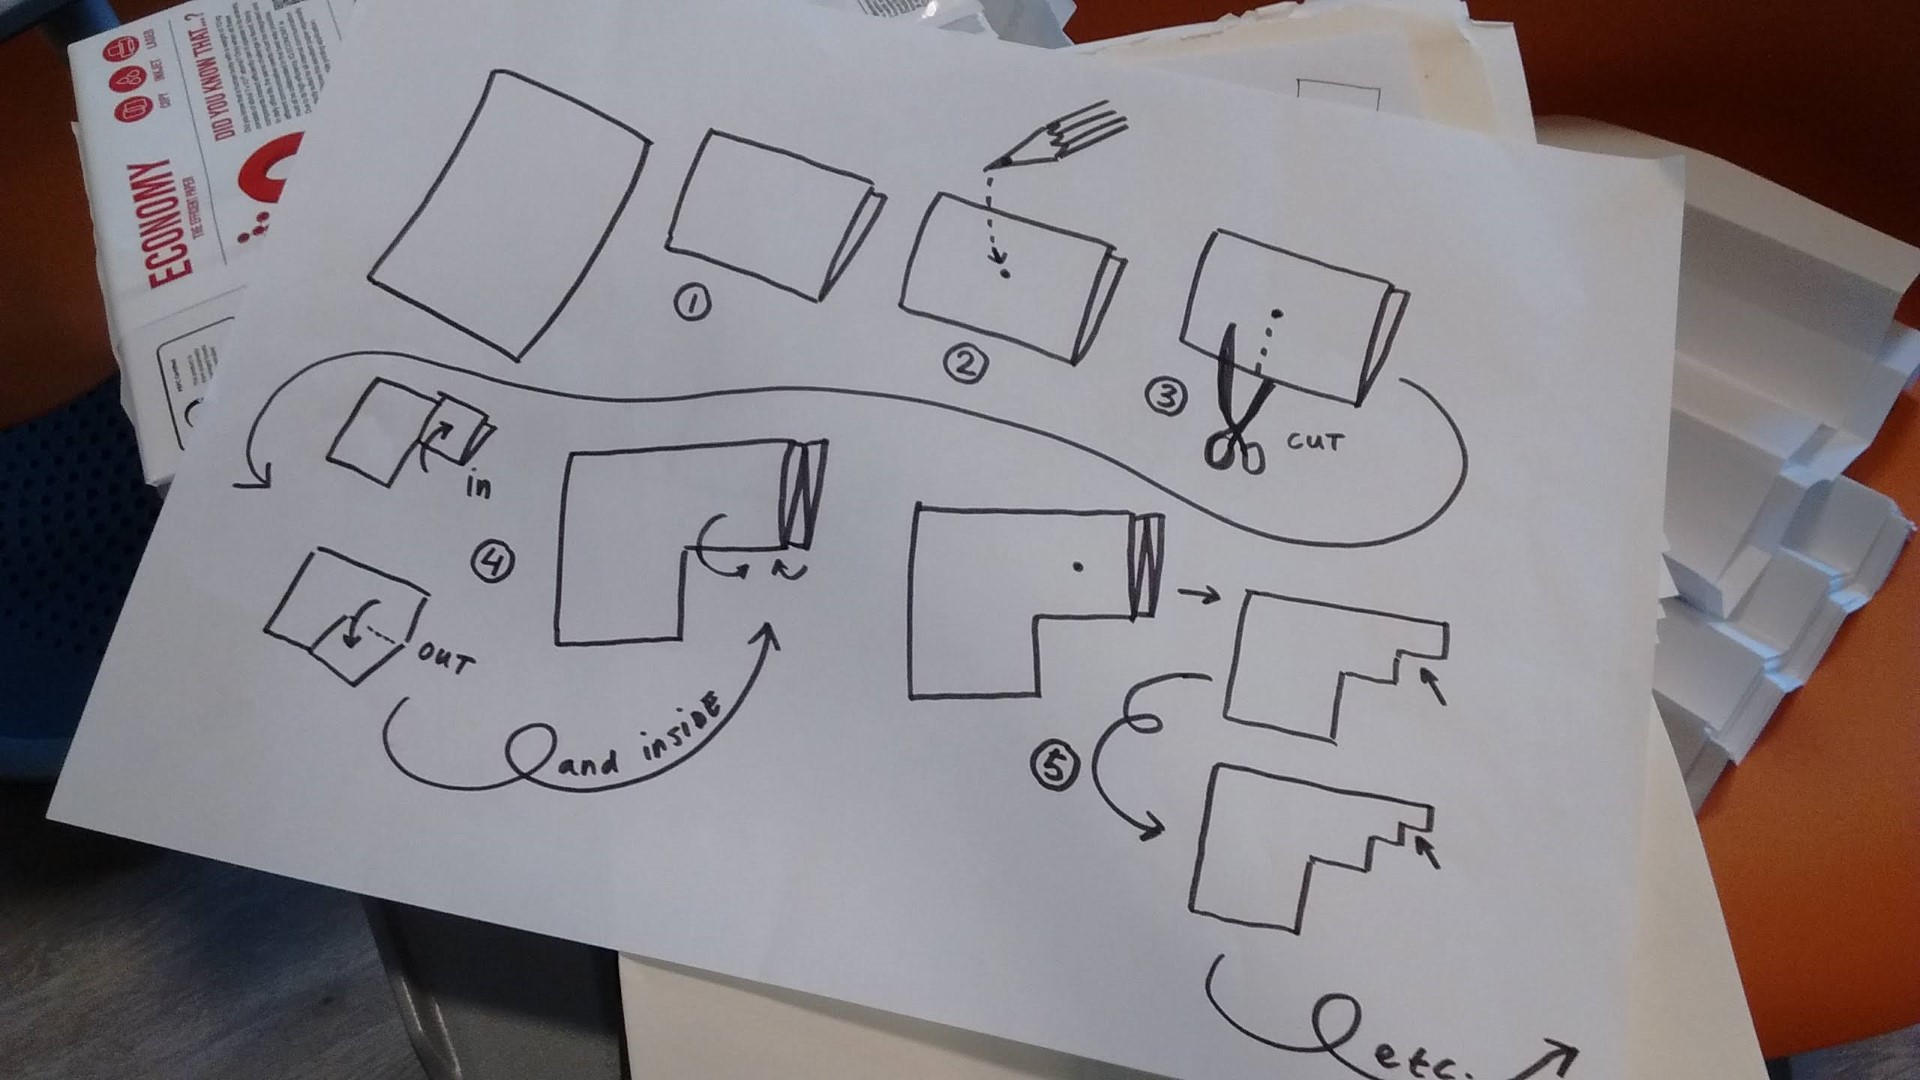 ECONOMY
THE EFFICIENT PAPER
COPY INKJET LASER
DID YOU KNOW THAT...?
1
2
3
CUT
in
4
OUT
and inside
5
etc.